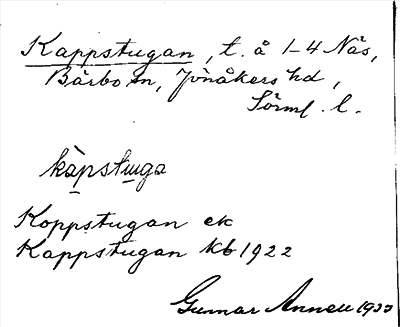 Kappstugan, t. å 1-4 Näs,
Bärbo sn, Jönåkers hd,
Sörml. l.
kàpstuga
Koppstugan ek
Kappstugan kb 1922
Gunnar Annell 1933